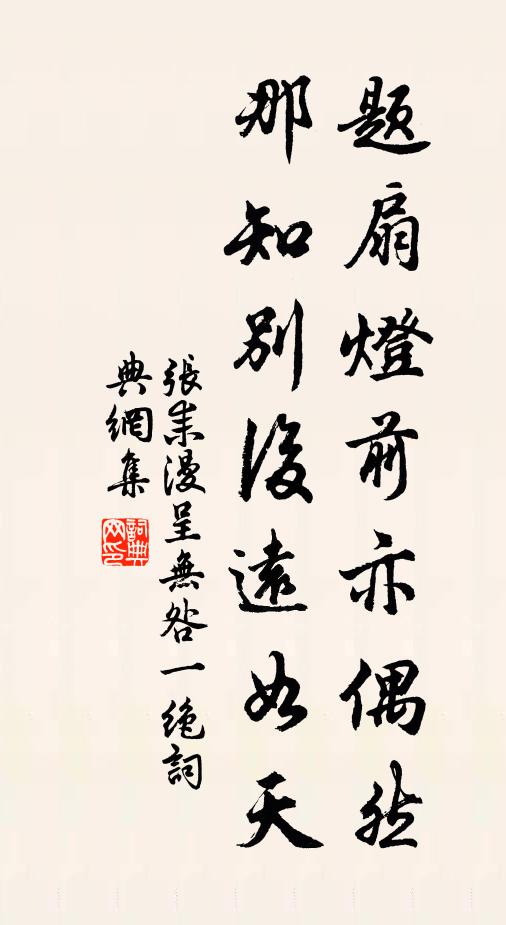 題扇燈前亦偶然
那知別後遠如天
張耒漫呈無咎一絶詞
典網集
詞典網印